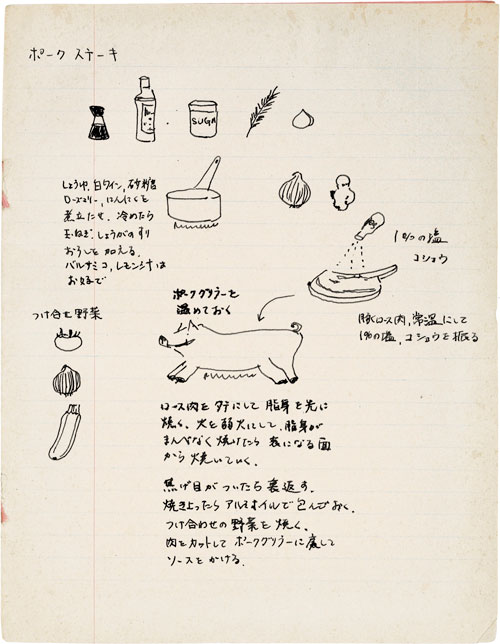 ポーク ステーキ
SUGA
しょうゆ、白ワイン、砂糖
ローズマリー、にんにくを
煮立たせ、冷めたら
玉ねぎ、しょうがのすり
おろしを加える。
バルサミコ、レモン汁は
お好で
1%の塩
コショウ
ポークグリラーを
温めておく
つけ合せ野菜
豚ロース肉、常温にして
1%の塩、コショウを振る
ロース肉をタテにして脂身を先に
焼く。火を弱火にして、脂身が
まんべなく焼けたら表になる面
から焼いていく。
焦げ目がついたら裏返す。
焼きよったらアルミホイルで包んでおく。
つけ合わせの野菜を焼く。
肉をカットしてポークグリラーに戻して
ソースをかける。